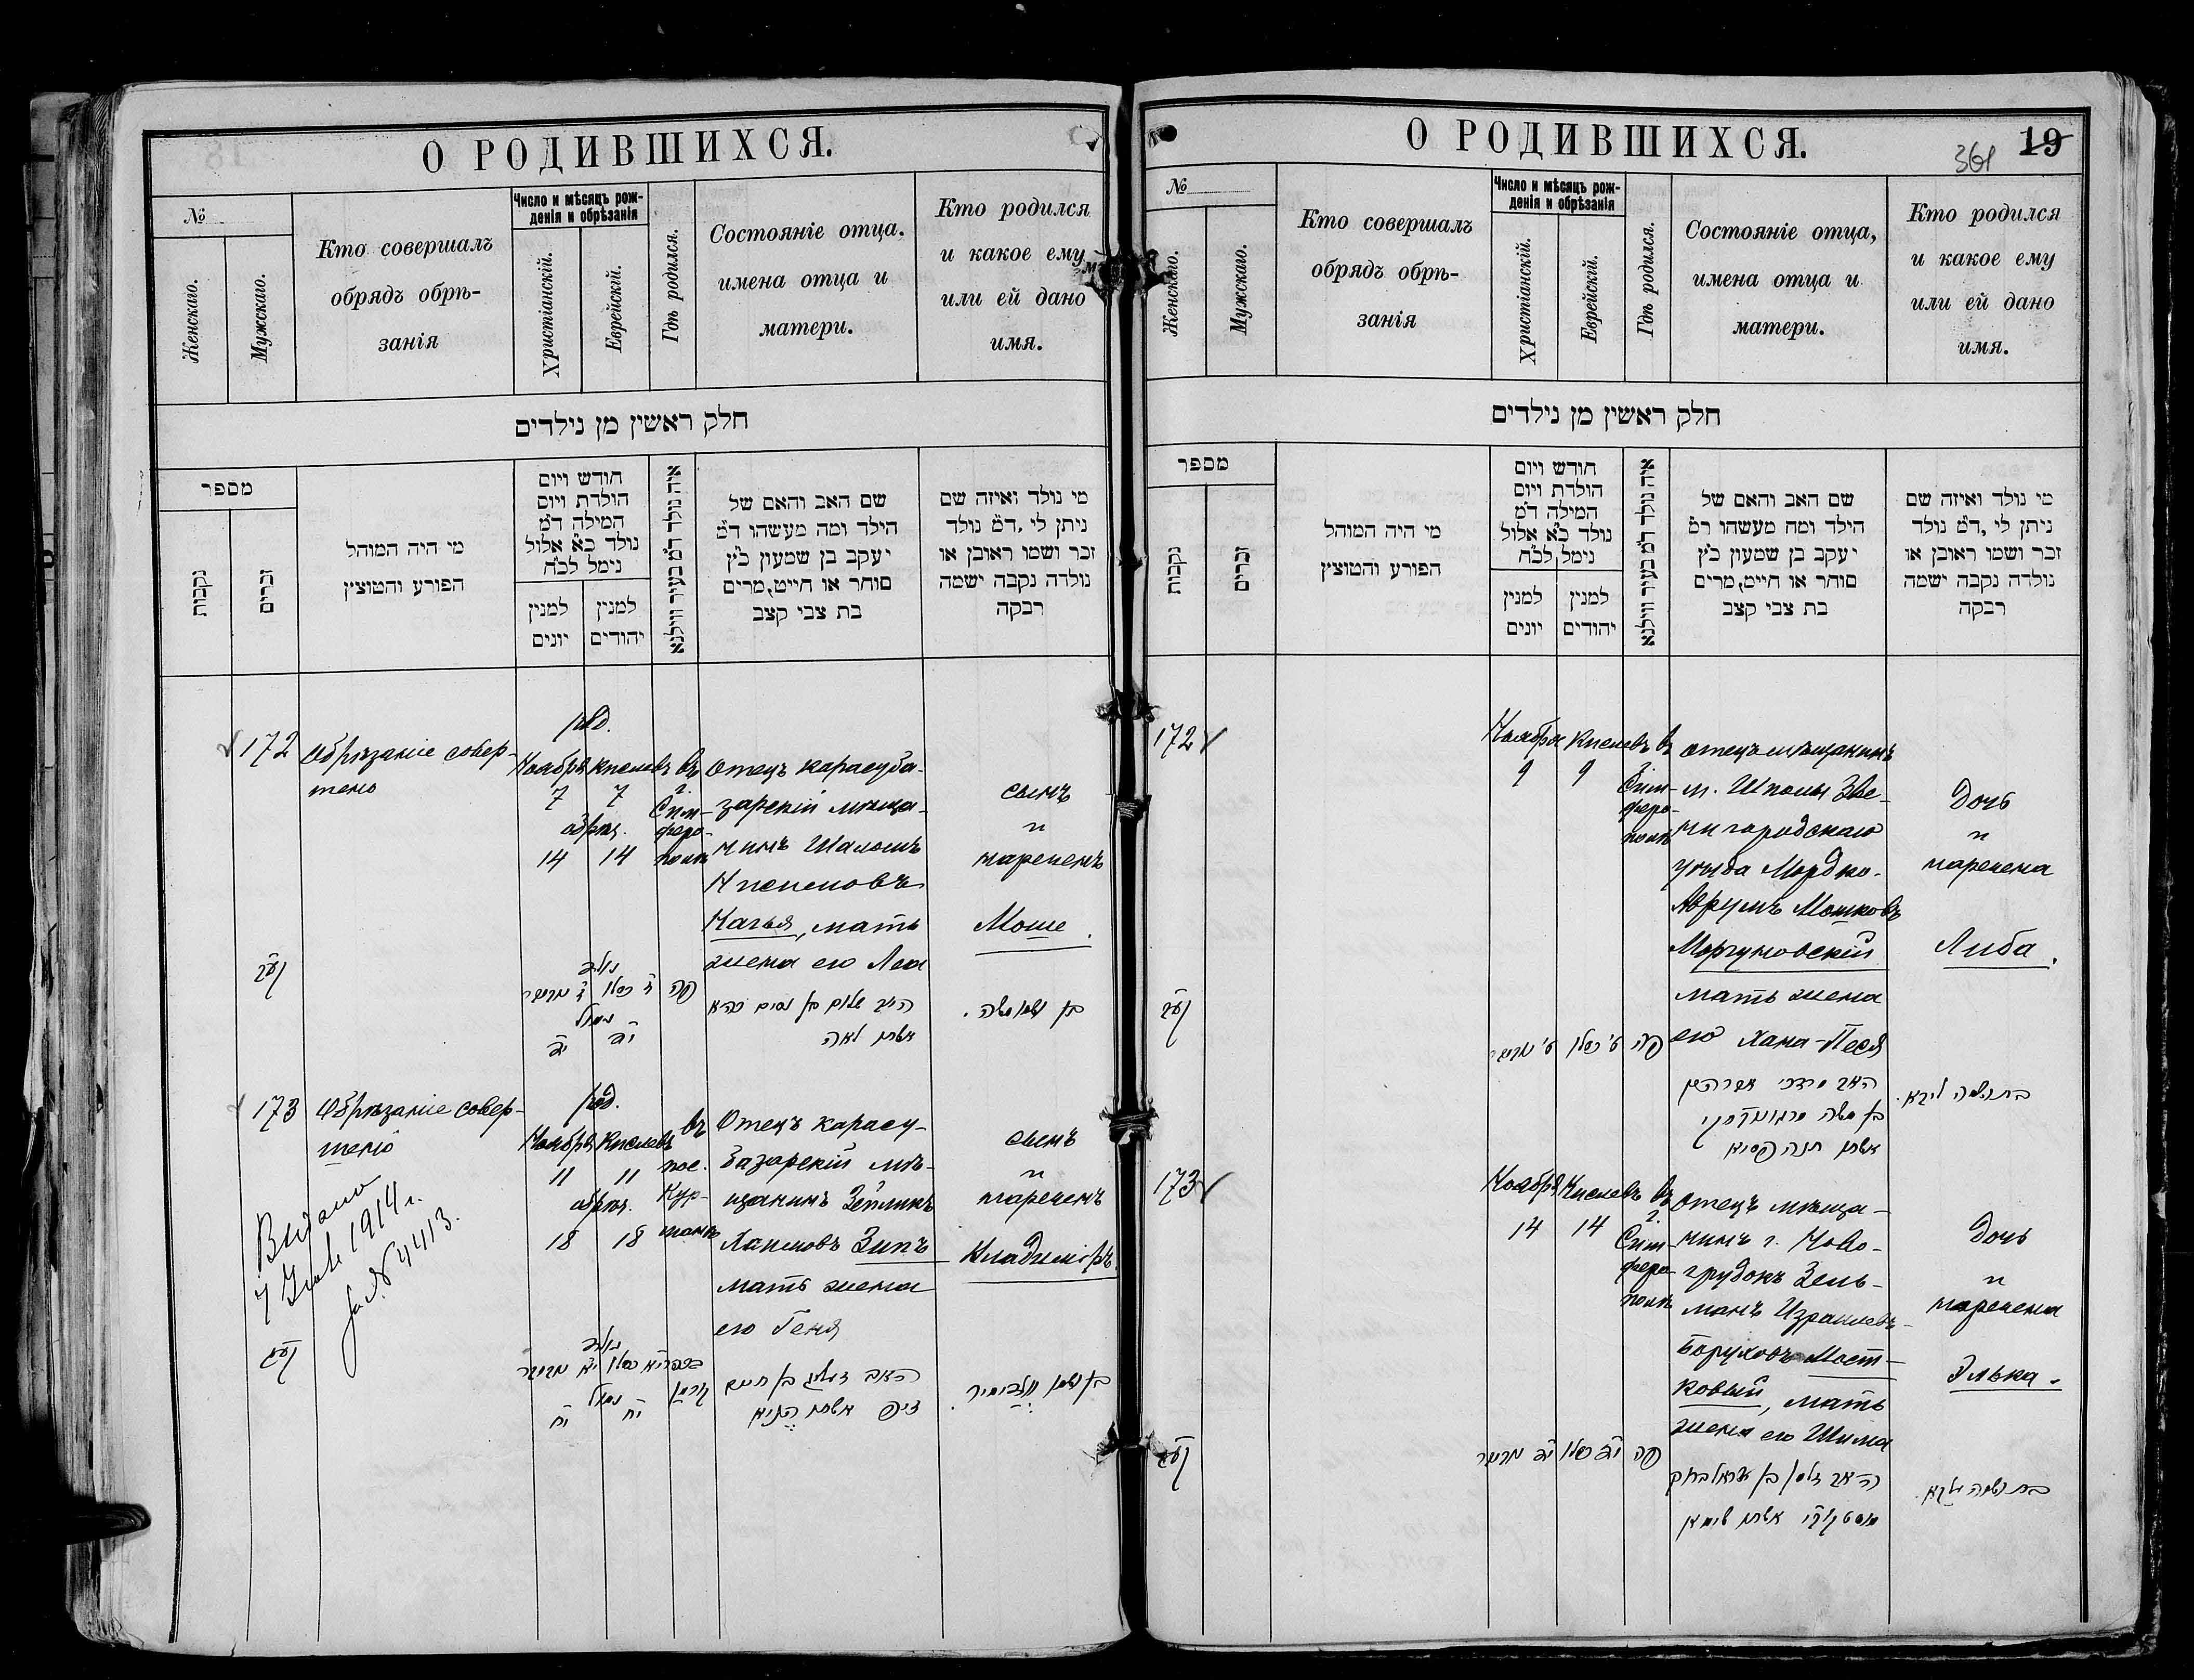 О РОДИВШИХСЯ.
№
Женскаго.
Мужскаго.
Кто совершалъ
обрядъ обрѣ-
занія
Число и мѣсяцъ рож-
денія и обрѣзанія
Христіанскій.
Еврейскій.
Гдѣ родился.
Состояніе отца.
имена отца и
матери.
Кто родился
и какое ему
или ей дано
имя.
חלק ראשין מן נילדים
מספר
נקבות
זכרים
מי היה המוהל
הפורע והמוצץ
חודש ויום
הולדת ויום
המילה ד"מ
נולד כ"א אלול
נימל לכ"ח
למנין
יונים
למנין
יהודים
איה נולד ד"מ בעיר ווילנא
שם האב והאם של
הילד ומה מעשהו ד"מ
יעקב בן שמעון כ"ץ
סוחר או חייט,מרים
בת צבי קצב
מי נולד ואיזה שם
ניתן לי ,ד"מ נולד
זכר ושמו ראובן או
נולדה נקבה ישמה
רבקה
172
Обрѣзаніе совер-
шено
род.
Ноября Кислевъ
7 7
обрѣз.
14 14
въ
г.
Сим-
феро-
полѣ
Отецъ карасуба-
зарскій мѣща-
нинъ Шаломъ
Ниссимовъ
Качья, мать
жена его Леа
сынъ
и
нареченъ
Моше.
קע"ב
נולד
ז' כסלו ז'
נמול
י"ד י"ד
פה
האב שלום בן נסים
אשתו לאה
בן ושמו משה.
173
Обрѣзаніе совер-
шено
род.
Ноября Кислевъ
11 11
обрѣз.
18 18
въ
пос.
Кур-
манъ
Отецъ карасу-
базарскій мѣ-
щанинъ Зейликъ
Хаимовъ Зипъ
мать жена
его Геня
сынъ
и
нареченъ
Владиміръ
Выдано
7 1914 г.
за № 4413.
קע"ג
נולד
י"א כסלו י"א
נמול
י"ח י"ח
קורמן
האב זעליג בן חיים
זיפ אשתו העניא
בן ושמו וולאדימיר.
О РОДИВШИХСЯ.
19
361
№
Женскаго.
Мужскаго.
Кто совершалъ
обрядъ обрѣ-
занія
Число и мѣсяцъ рож-
денія и обрѣзанія
Христіанскій.
Еврейскій.
Гдѣ родился.
Состояніе отца,
имена отца и
матери.
Кто родился
и какое ему
или ей дано
имя.
חלק ראשין מן נילדים
מספר
נקבות
זכרים
מי היה המוהל
הפורע והמוצץ
חודש ויום
הולדת ויום
המילה ד"מ
נולד כ"א אלול
נימל לכ"ח
למנין
יונים
למנין
יהודים
איה נולד ד"מ בעיר ווילנא
שם האב והאם של
הילד ומה מעשהו ד"מ
יעקב בן שמעון כ"ץ
סוחר או חייט,מרים
בת צבי קצב
מי נולד ואיזה שם
ניתן לי ,ד"מ נולד
זכר ושמו ראובן או
נולדה נקבה ישמה
רבקה
172
Ноября Кислевъ
9 9
въ
г.
Сим-
феро-
полѣ
отецъ мѣщанинъ
м. Шполы Зве-
нигородскаго
уѣзда Мордко-
Аврумъ Мошковъ
Моргуновскій
мать жена
его Хана-Песя
Дочь
и
наречена
Либа.
קע"ב
ט' כסלו ט'
פה
האב מרדכי אברהם
בן משה מרגונובסקי
אשתו חנה פסיא
בת ושמה ליבא.
173
Ноября Кислевъ
14 14
въ
г.
Сим-
феро-
полѣ
отецъ мѣща-
нинъ г. Ново-
грудокъ Зель-
манъ Израилевъ-
Боруховъ Мост-
ковый, мать
жена его Шима
Дочь
и
наречена
Элька.
קע"ג
י"ד כסלו י"ד
פה
האב זלמן בן ישראל ברוך
מוסטקובי אשתו שימא
בת ושמה עלקא.